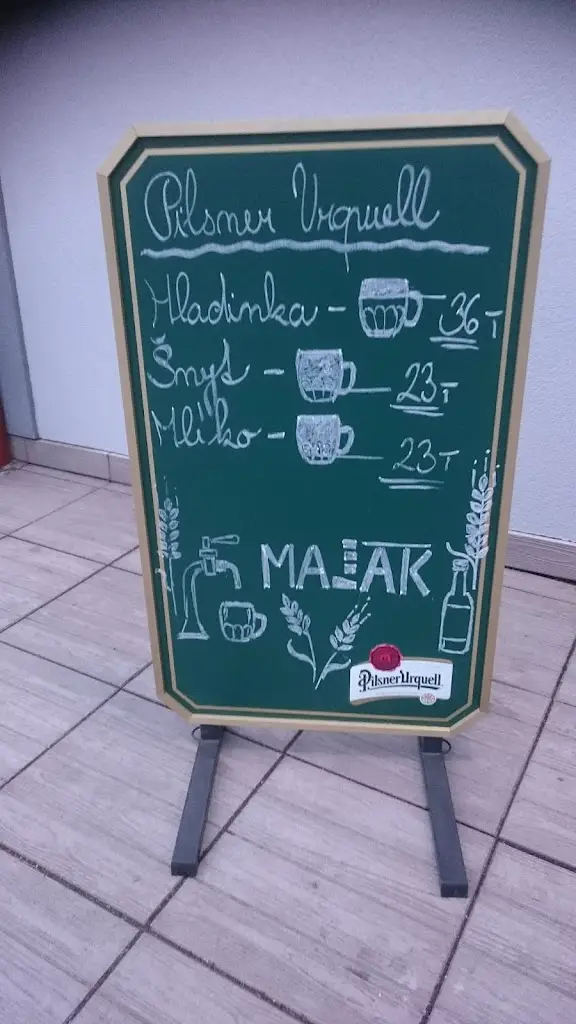 Pilsner Urquell
Hladinka - 36,-
Šnyt - 23,-
Mlíko - 23,-
MAJÁK
Pilsner Urquell